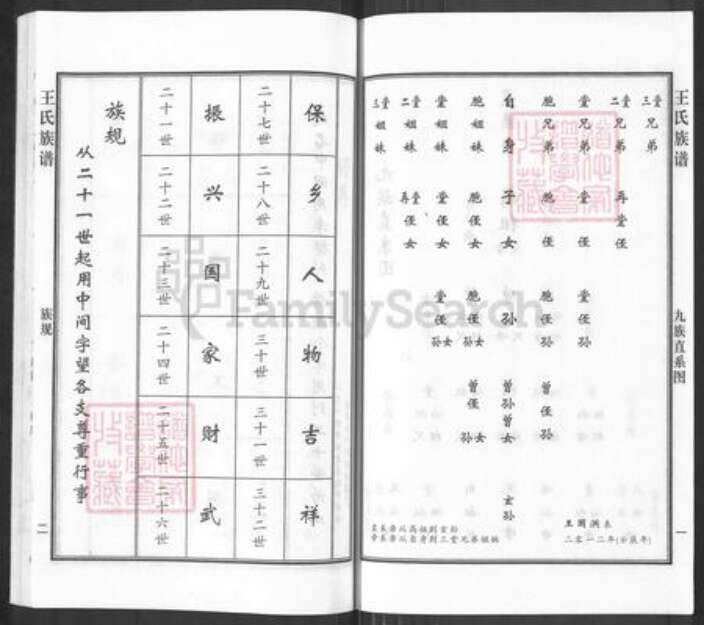 王氏族谱
九族直系图
一
三堂兄弟
二堂兄弟 再堂侄
堂兄弟 堂侄 堂侄孙
胞兄弟 胞侄 胞侄孙 曾侄孙
自身 子女 孙 曾孙曾女 玄孙
胞姐妹 胞侄女 胞侄孙女 曾侄孙女
堂姐妹 堂侄女 堂侄孙女
二堂姐妹 再堂侄女
三堂姐妹
二零一二年(壬辰年)
从高祖到玄孙
从自身到三堂兄弟姐妹
保 乡 人 物 吉 祥
二十七世 二十八世 二十九世 三十世 三十一世 三十二世
振 兴 国 家 财 武
二十一世 二十二世 二十三世 二十四世 二十五世 二十六世
族规
从二十一世起用中间字望各支尊重行事
王氏族谱
族规
二
FamilySearch